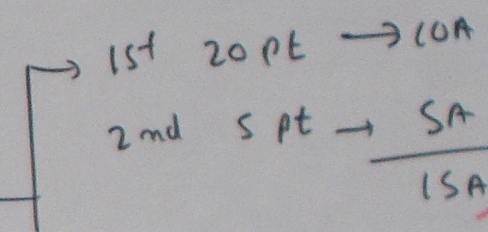 → 1st 20 pt → 10A
2nd 5 pt → 5A
15A